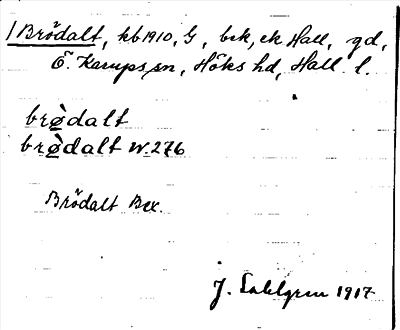 /Brödalt, kb 1910, G, bck, ek Hall, gd,
Ö. Karups sn, Höks hd, Hall. l.
brödalt
brödalt W. 276
Brödalt Bex.
J. Sahlgren 1917